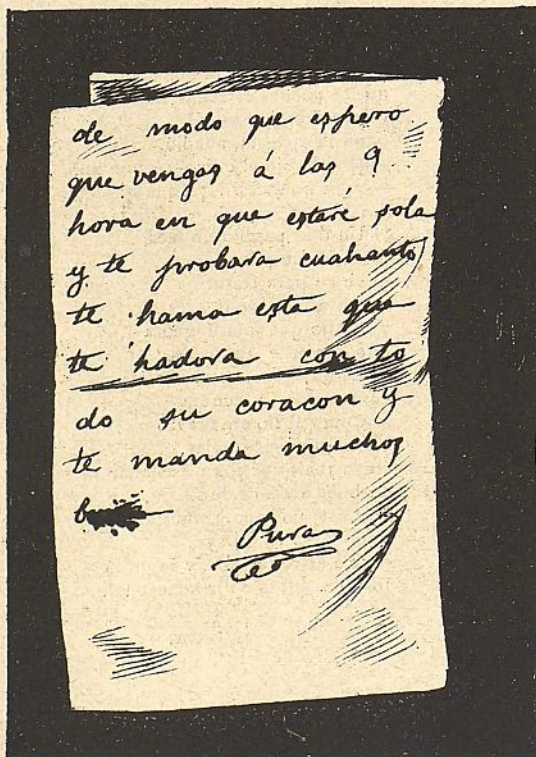 de modo que espero
que vengas á las 9
hora en que estaré sola
y te probara cuahanto
te hama esta que
te hadora con to
do su coracon y
te manda muchos
Pura